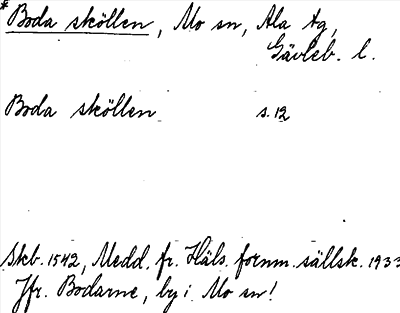 *Boda sköllen, Mo sn, Ala tg,
Gävleb. l.
Boda sköllen s. 12
Skb. 1542, Medd. fr. Häls. fornm. sällsk. 1933
Jfr. Bodarne, by i Mo sn!